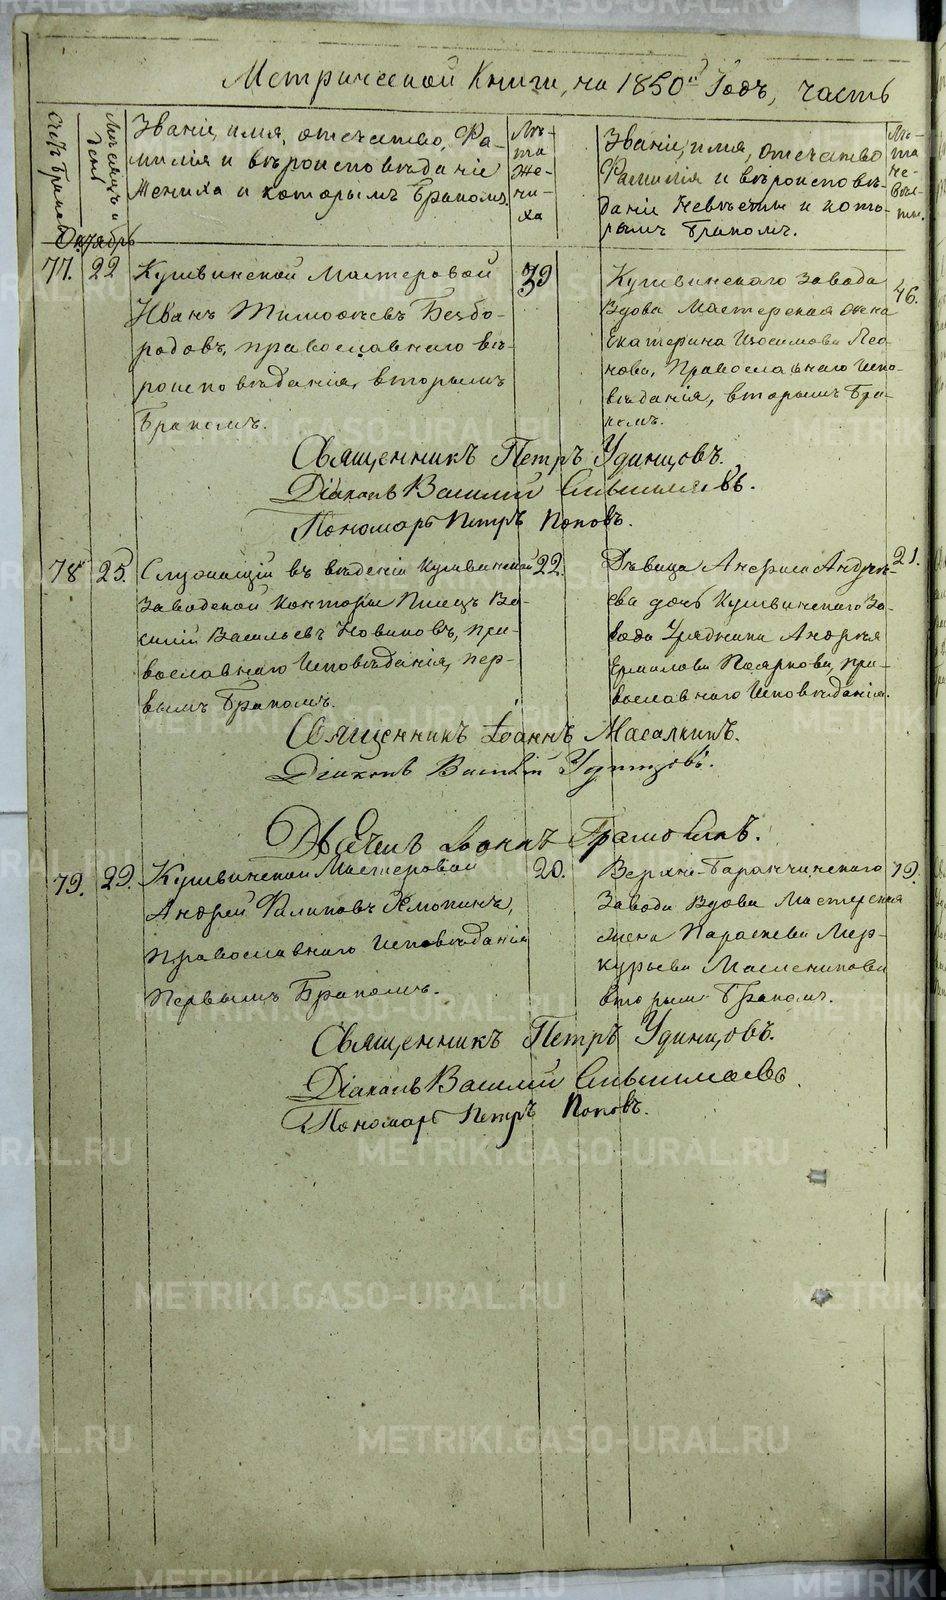 Метрической Книги, на 1850й Годъ, часть
Счетъ Браковъ
Месяцъ и день
Званіе, имя, отечество, Фа-
милія и вѣроисповѣданіе
Жениха и которымъ Бракомъ.
Лѣ-
та
Же-
ни-
ха
Званіе, имя, отечество
Фамилія и вѣроисповѣ-
даніе Невѣсты и кото-
рымъ Бракомъ.
Лѣ-
та
Не-
вѣс-
ты.
Октябрь
77. 22
Кушвинской Мастеровой
Иванъ Тимофеевъ Безбо-
родовъ, православнаго вѣ-
роисповѣданія, вторымъ
Бракомъ.
39
Кушвинскаго Завода
Вдова Мастерская жена
Екатерина Изосимова Лео-
нова, Православнаго Испо-
вѣданія, вторымъ Бра-
комъ.
46.
Священникъ Петръ Удинцовъ.
Діаконъ Василій
Пономарь Петръ Поповъ.
78 25.
Служащій въ вѣденіи Кушвинской
Заводской Конторы Писецъ Ва-
силій Васильевъ Новиковъ, пра-
вославнаго Исповѣданія, пер-
вымъ Бракомъ.
22.
Дѣвица Анфиса Андрѣ-
ева дочь Кушвинскаго За-
вода Урядника Андрея
Ермилова Пояркова, пра-
вославнаго Исповѣданія.
21.
Священникъ Іоаннъ Масалкинъ.
Діаконъ Василій Удинцовъ.
Дьячекъ Іоаннъ Грамолинъ.
79. 29.
Кушвинской Мастеровой
Андрей Филиповъ Хмопинъ,
Православнаго Исповѣданія
Первымъ Бракомъ.
20.
Верхне-Баранчинскаго
Завода Вдова Мастерская
жена Параскева Мер-
курьева Масленикова
вторымъ Бракомъ.
19.
Священникъ Петръ Удинцовъ.
Діаконъ Василій
Пономарь Петръ Поповъ.
METRIKI.GASO-URAL.RU